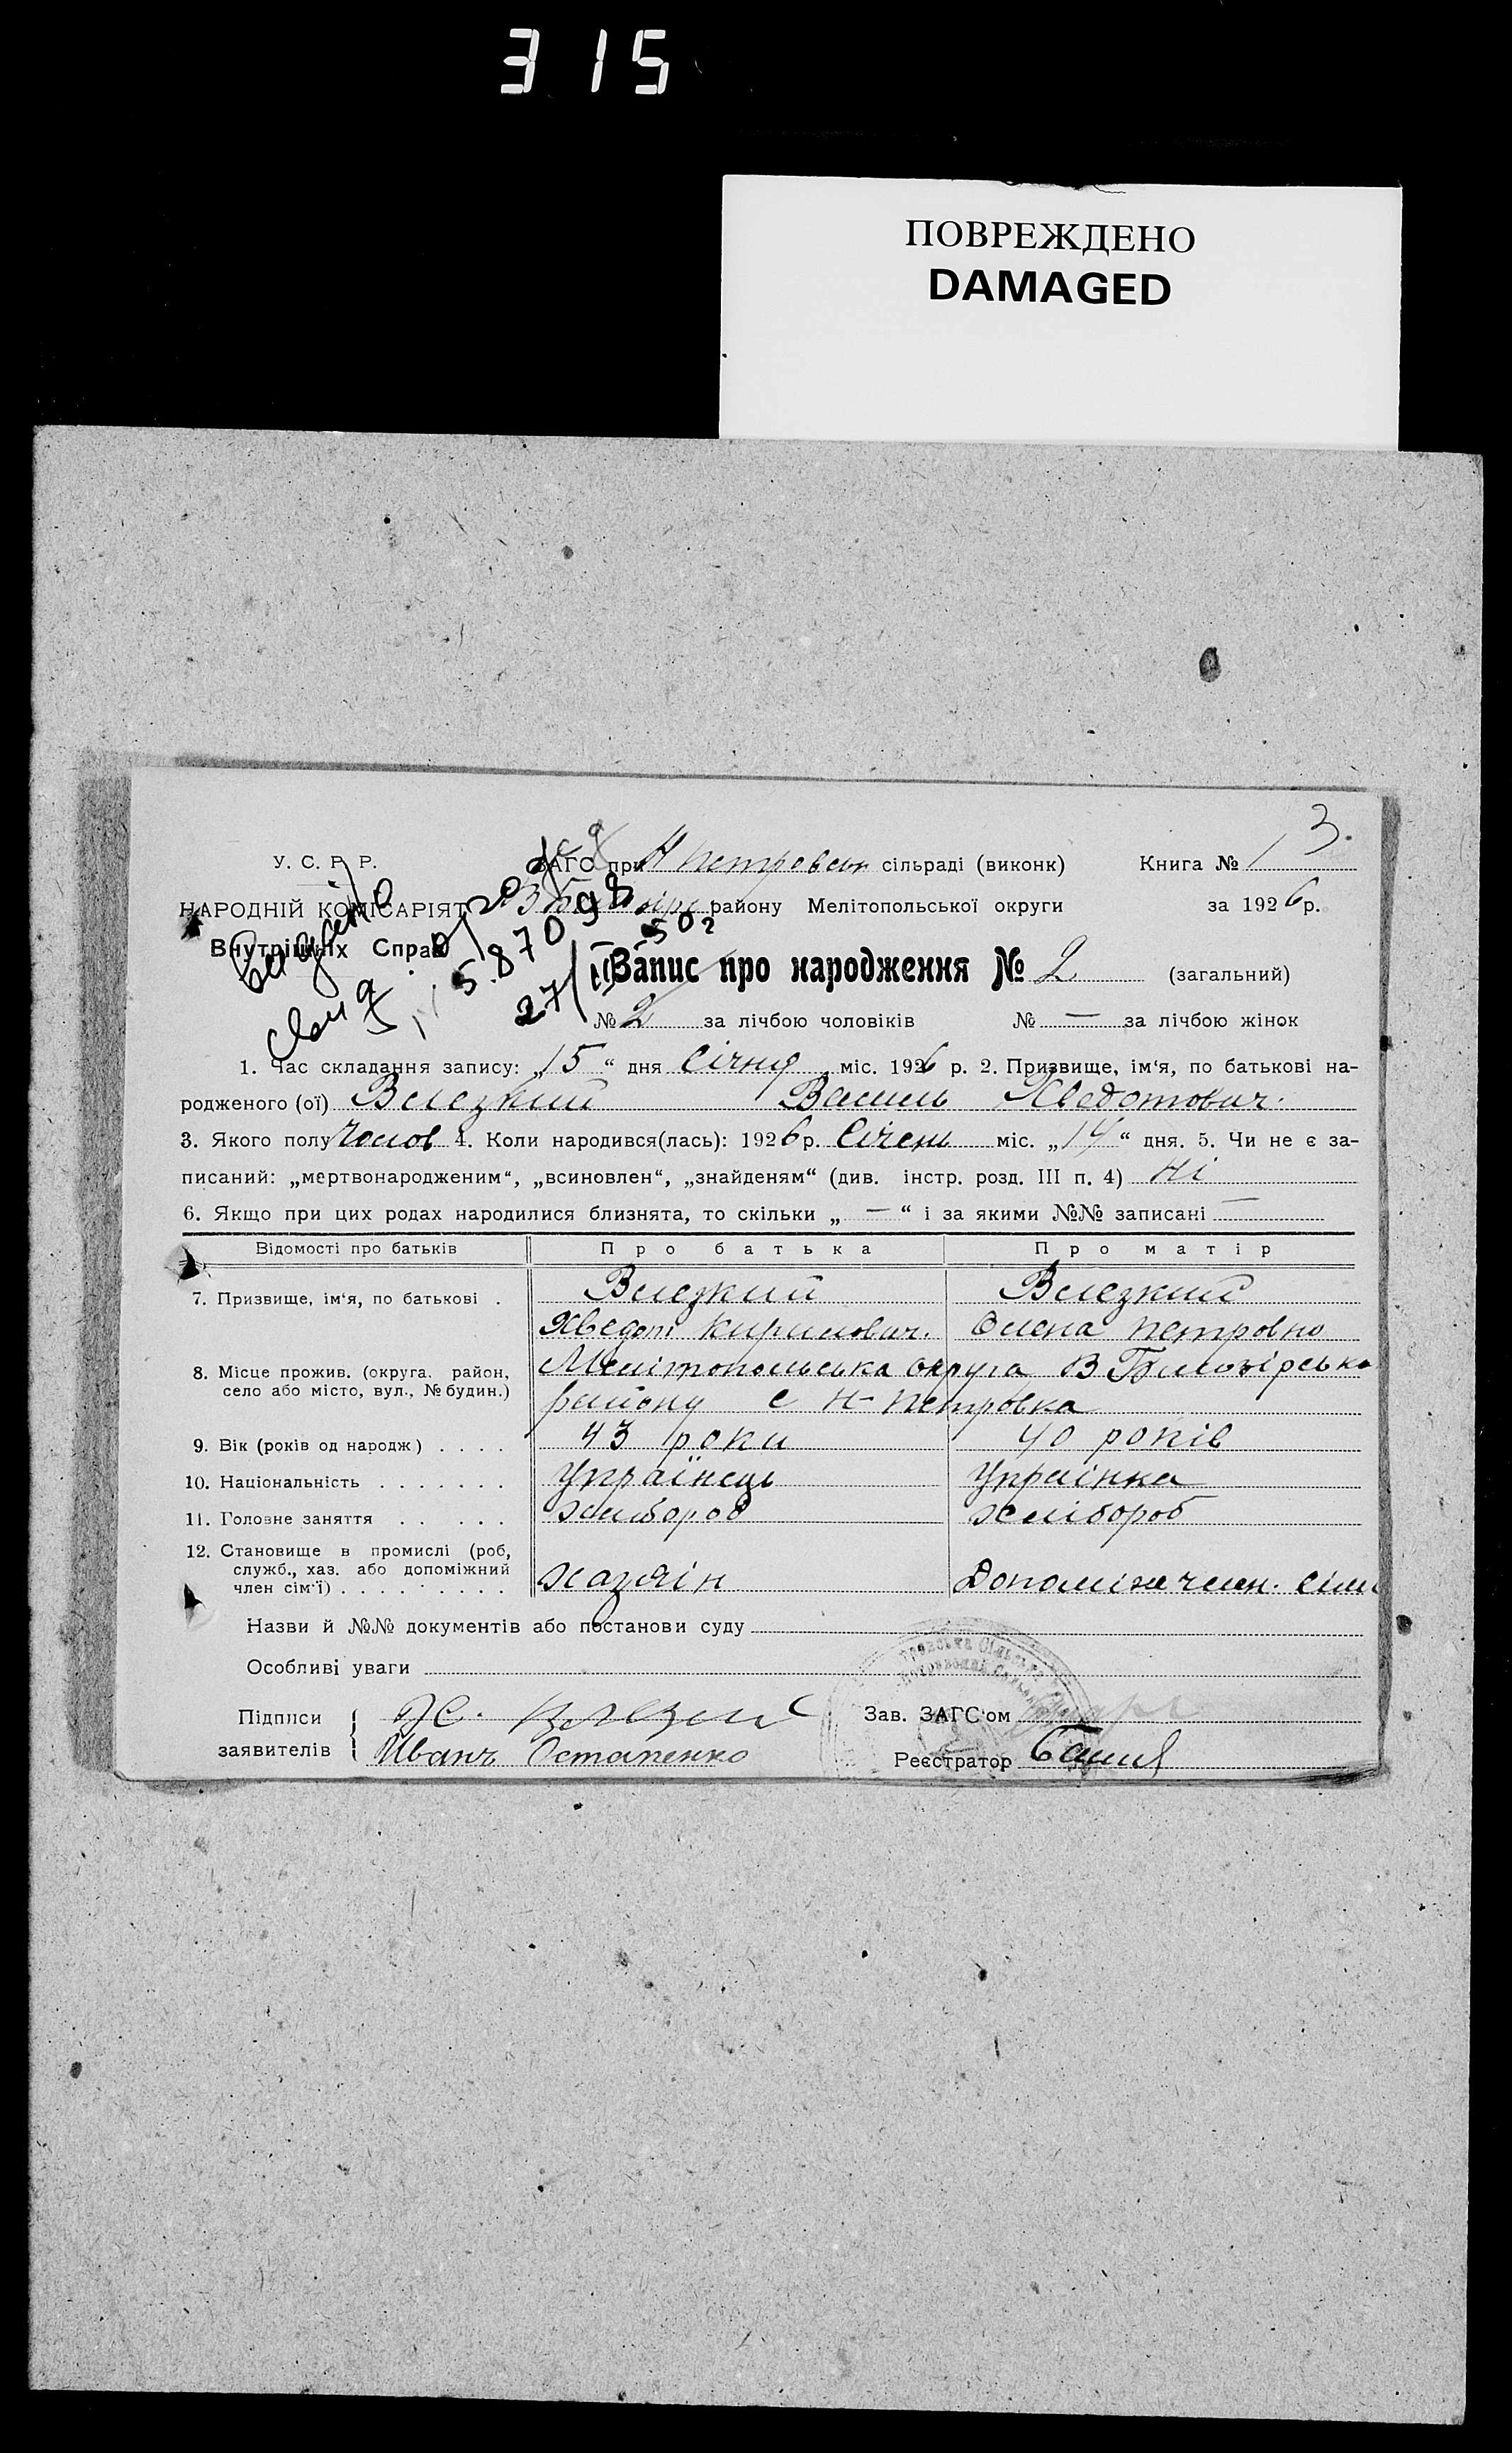 315
ПОВРЕЖДЕНО
DAMAGED
3.
У. С. Р. Р. ЗАГС при Н Петровськ сільраді (виконк) Книга № 1
НАРОДНІЙ КОМІСАРІЯТ району Мелітопольської округи за 1926 р.
Внутрішніх Справ
Запис про народження № 2 (загальний)
№ 2 за лічбою чоловіків № — за лічбою жінок
Видано
5.870598
502
27/III
1. Час складання запису: „15“ дня Січня міс. 1926 р. 2. Призвище, ім‘я, по батькові на-
родженого (ої) Велезкий Василь Хведотович.
3. Якого полу Чолов 4. Коли народився(лась): 1926 р. Січень міс. „14“ дня. 5. Чи не є за-
писаний: „мертвонародженим“, „всиновлен“, „знайденям“ (див. інстр. розд. III п. 4) Ні
6. Якщо при цих родах народилися близнята, то скільки „ — “ і за якими №№ записані —
Відомості про батьків Про батька Про матір
7. Призвище, ім‘я, по батькові . Велезкий Велезкий
Хведот Кирилович. Олена Петровно
8. Місце прожив. (округа, район, село або місто, вул., № будин.) Мелітопольська округа В Білозірсько
району с Н-Петровка
9. Вік (років од народж) . . . . 43 роки 40 років
10. Національність . . . . . . . Українець Українка
11. Головне заняття . . . . . Хлібороб Хлібороб
12. Становище в промислі (роб,
служб., хаз. або допоміжний
член сім‘ї) . . . . . . . . . Хазяїн Допоміж член. Сім
Назви й №№ документів або постанови суду
Особливі уваги
Підписи Зав. ЗАГС‘ом
заявителів Иванъ Остапенко Реєстратор